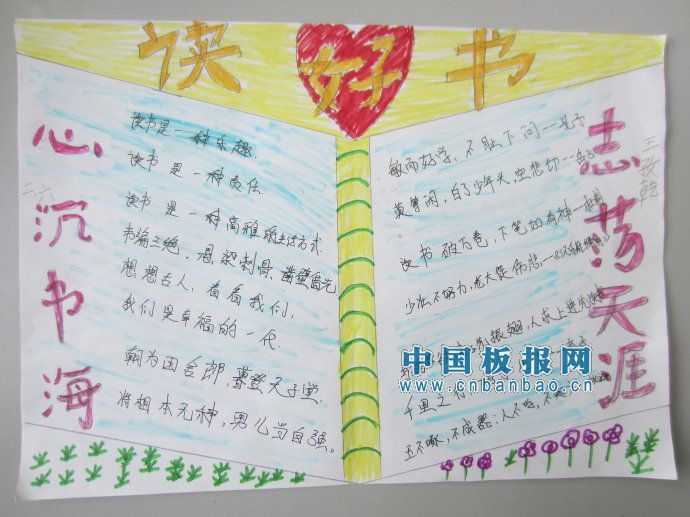 读好书
心沉书海
志荡天涯
二六
读书是一种乐趣.
读书是一种责任
读书是一种高雅的生活方式
韦编三绝.悬梁刺骨.凿壁偷光
想想古人,看看我们,
我们是幸福的一代.
朝为田舍郎.暮登天子堂.
将相本无种,男儿当自强。
敏而好学、不耻下问--孔子
莫等闲,白了少年头,空悲切--岳飞
读书破万卷,下笔如有神--杜甫
少壮不努力,老大徒伤悲,--《汉乐府》
振翅,人求上进先
千里之行
玉不啄,不成器;人不学,不
中国板报网
www.cnbanbao.cn